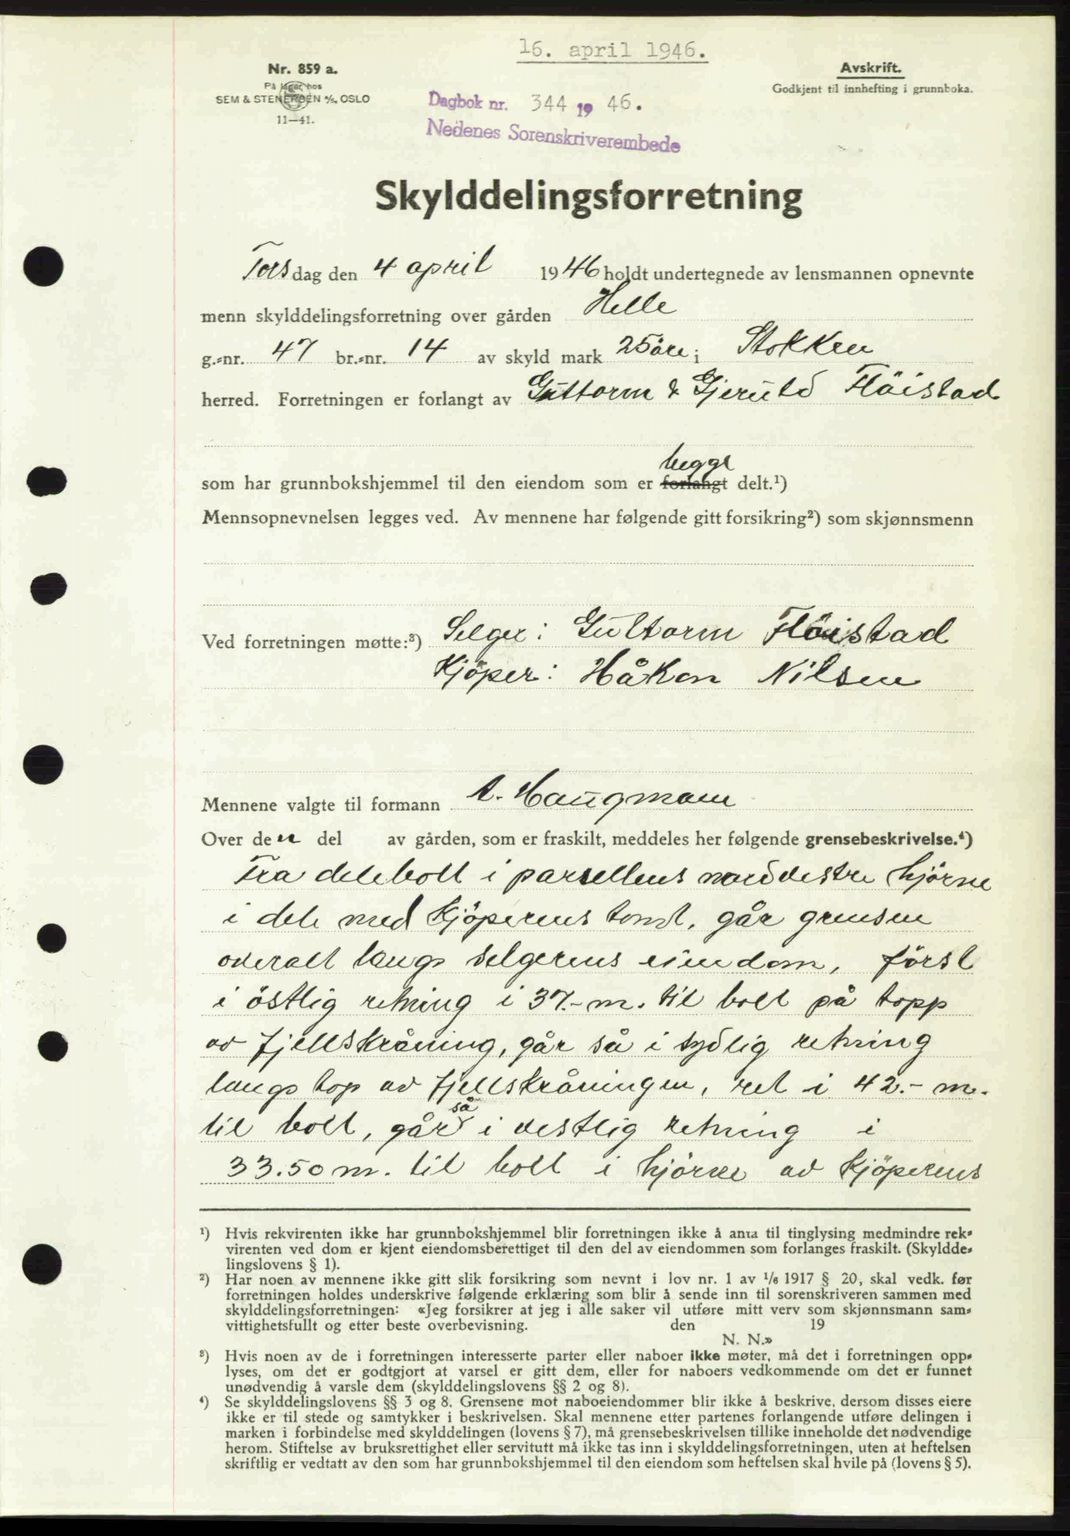 16. april 1946.
Nr. 859 a.
På lager hos
SEM & STENERSEN A/S, OSLO
11—41.
Avskrift.
Godkjent til innhefting i grunnboka.
Dagbok nr. 344 19 46.
Nedenes Sorenskriverembede
Skylddelingsforretning
Torsdag den 4 april 1946 holdt undertegnede av lensmannen opnevnte
menn skylddelingsforretning over gården Helle
g.-nr. 47 br.-nr. 14 av skyld mark 25 öre i Stokken
herred. Forretningen er forlangt av Guttorm & Gjeruld Flöistad
begge
som har grunnbokshjemmel til den eiendom som er forlangt delt.¹)
Mennsopnevnelsen legges ved. Av mennene har følgende gitt forsikring²) som skjønnsmenn
Ved forretningen møtte:³) Selger: Guttorm Flöistad
Kjöper: Håkon Nilsen
Mennene valgte til formann A. Haugmann
Over den del av gården, som er fraskilt, meddeles her følgende grensebeskrivelse.⁴)
Fra delebolt i parsellens nordvestre hjörne
i dele med Kjöperens tomt, går grensen
overalt langs selgerens eiendom, först
i östlig retning i 37.- m. til bolt på topp
av fjellskråning, går så i sydlig retning
langs top av fjellskråningen, ret i 42.- m.
så
til bolt, går i vestlig retning i
33.50 m. til bolt i hjörne av Kjöperens
¹) Hvis rekvirenten ikke har grunnbokshjemmel blir forretningen ikke å anta til tinglysing medmindre rek-
virenten ved dom er kjent eiendomsberettiget til den del av eiendommen som forlanges fraskilt. (Skyldde-
lingslovens § 1).
²) Har noen av mennene ikke gitt slik forsikring som nevnt i lov nr. 1 av 1/6 1917 § 20, skal vedk. før
forretningen holdes underskrive følgende erklæring som blir å sende inn til sorenskriveren sammen med
skylddelingsforretningen: «Jeg forsikrer at jeg i alle saker vil utføre mitt verv som skjønnsmann sam-
vittighetsfullt og etter beste overbevisning. den 19
N. N.»
³) Hvis noen av de i forretningen interesserte parter eller naboer ikke møter, må det i forretningen opp-
lyses, om det er godtgjort at varsel er gitt dem, eller for naboers vedkommende om det er funnet
unødvendig å varsle dem (skylddelingslovens §§ 2 og 8).
⁴) Se skylddelingslovens §§ 3 og 8. Grensene mot naboeiendommer blir ikke å beskrive, dersom disses eiere
ikke er til stede og samtykker i beskrivelsen. Skal mennene etter partenes forlangende utføre delingen i
marken i forbindelse med skylddelingen (lovens § 7), må grensebeskrivelsen tillike inneholde det nødvendige
herom. Stiftelse av bruksrettighet eller servitutt må ikke tas inn i skylddelingsforretningen, uten at heftelsen
skriftlig er vedtatt av den som har grunnbokshjemmel til den eiendom som heftelsen skal hvile på (lovens § 5).